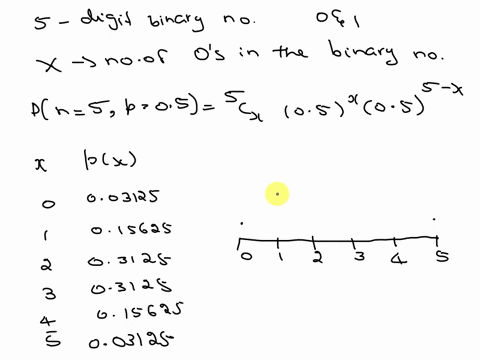 5 - digit binary no. 0 & 1
X → no. of 0's in the binary no.
P(n=5, p=0.5) = ⁵Cₓ (0.5)ˣ (0.5)⁵⁻ˣ
x p(x)
0 0.03125
1 0.15625
2 0.3125
3 0.3125
4 0.15625
5 0.03125
0 1 2 3 4 5